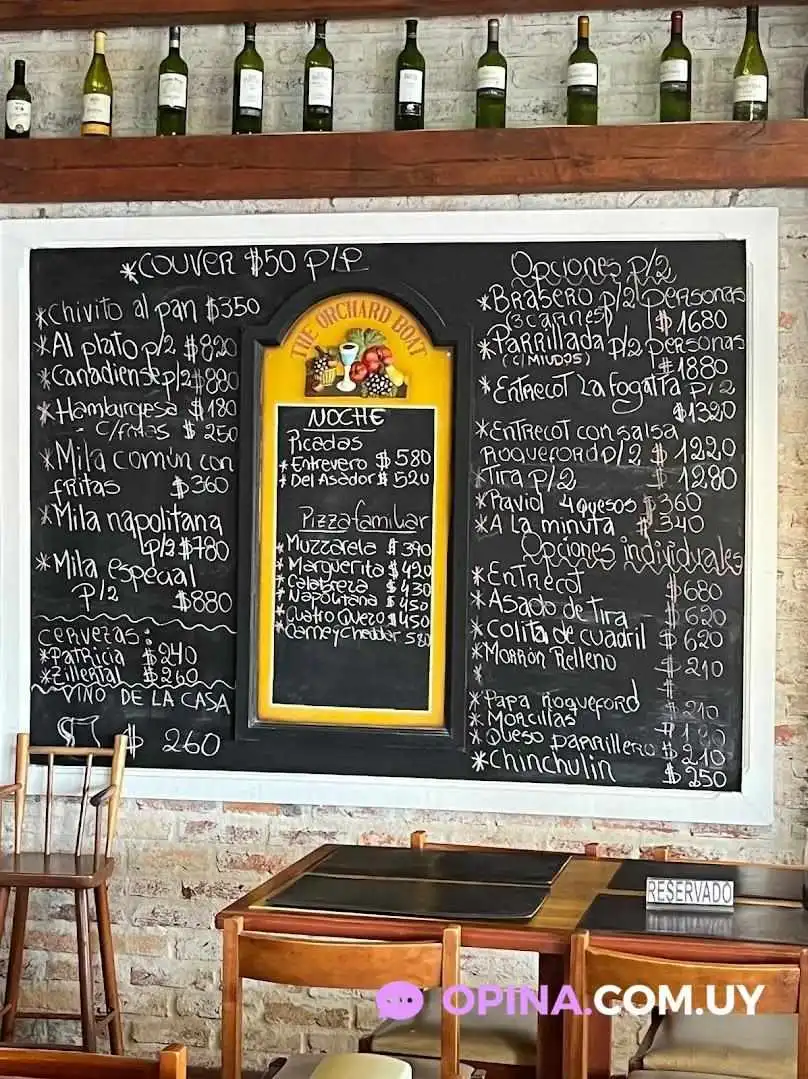 *COUVER $50 P/P
*Chivito al pan $350
*Al plato p/2 $820
*Canadiense p/2 $880
*Hamburgesa $180
- C/fritas $250
*Mila común con
fritas $360
*Mila napolitana
p/2 $780
*Mila especial
P/2 $880
CERVEZAS:
*PATRICIA $240
*Zillertal $260
VINO DE LA CASA
$ 260
THE ORCHARD BOAT
NOCHE
Picadas
*Entrevero $580
*Del Asador $520
Pizza familiar
*Muzzarela $390
*Marguerita $420
*Calabreza $430
*Napolitana $450
*Cuatro Quezo $450
*Carne y Cheddar 580
Opciones P/2
*BRASERO p/2 personas
(3 CARNES) $1680
*PARRILLADA p/2 personas
(C/MIUDOS) $1880
*ENTRECOT La Fogatta P/2
$1320
*ENTRECOT con salsa
ROQUEFORD P/2 $1220
*Tira p/2 $1280
*Raviol 4 quesos $360
*A La minuta $340
Opciones individuales
*ENTRECOT $680
*Asado de tira $620
*Colita de cuadril $620
*Morrón Relleno $210
*
*Papa Roqueford $210
*Morcillas $190
*Queso parrillero $210
*Chinchulin $250
RESERVADO
OPINA.COM.UY